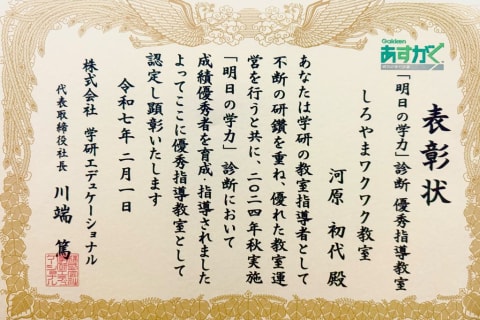 Gakken
あすがく
表彰状
「明日の学力」診断 優秀指導教室
しろやまワクワク教室
河原 初代 殿
あなたは学研の教室指導者として
不断の研鑽を重ね、優れた教室運
営を行うと共に、二〇二四年秋実施
「明日の学力」診断において
成績優秀者を育成・指導されました
よってここに優秀指導教室として
認定し顕彰いたします
令和七年 二月一日
株式会社 学研エデュケーショナル
代表取締役社長 川端 篤